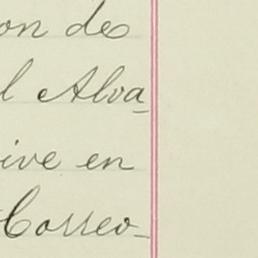 on de
l Alva-
ive en
Correo-